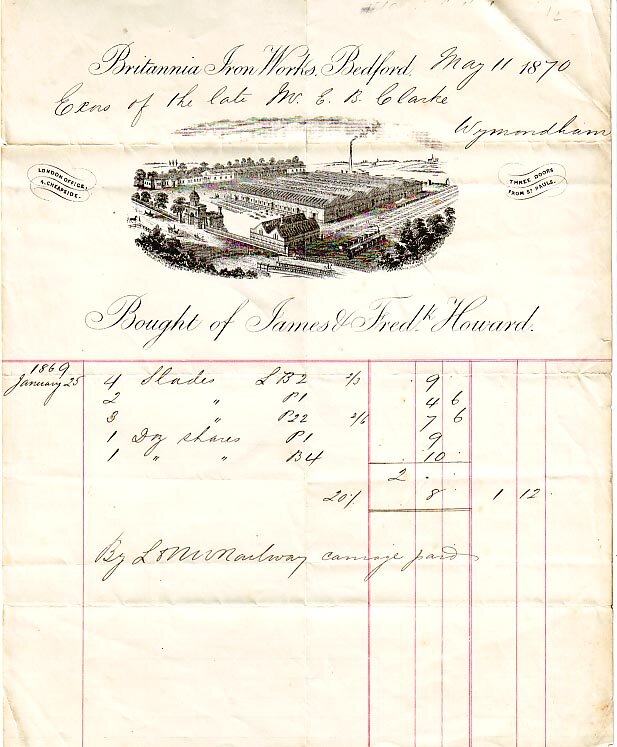 Britannia Iron Works, Bedford. May 11 1870
Exors of the late Mr. E. B. Clarke
Wymondham
LONDON OFFICE:
4, CHEAPSIDE.
THREE DOORS
FROM ST PAULS.
Bought of James & Fredk. Howard.
1869
January 25 4 Slades LB2 2/3 9
2 " P1 4 6
3 " P22 2/6 7 6
1 Dog shares P1 9
1 " " B4 10
2
20% 8 1 12
By L & NW Railway carriage paid